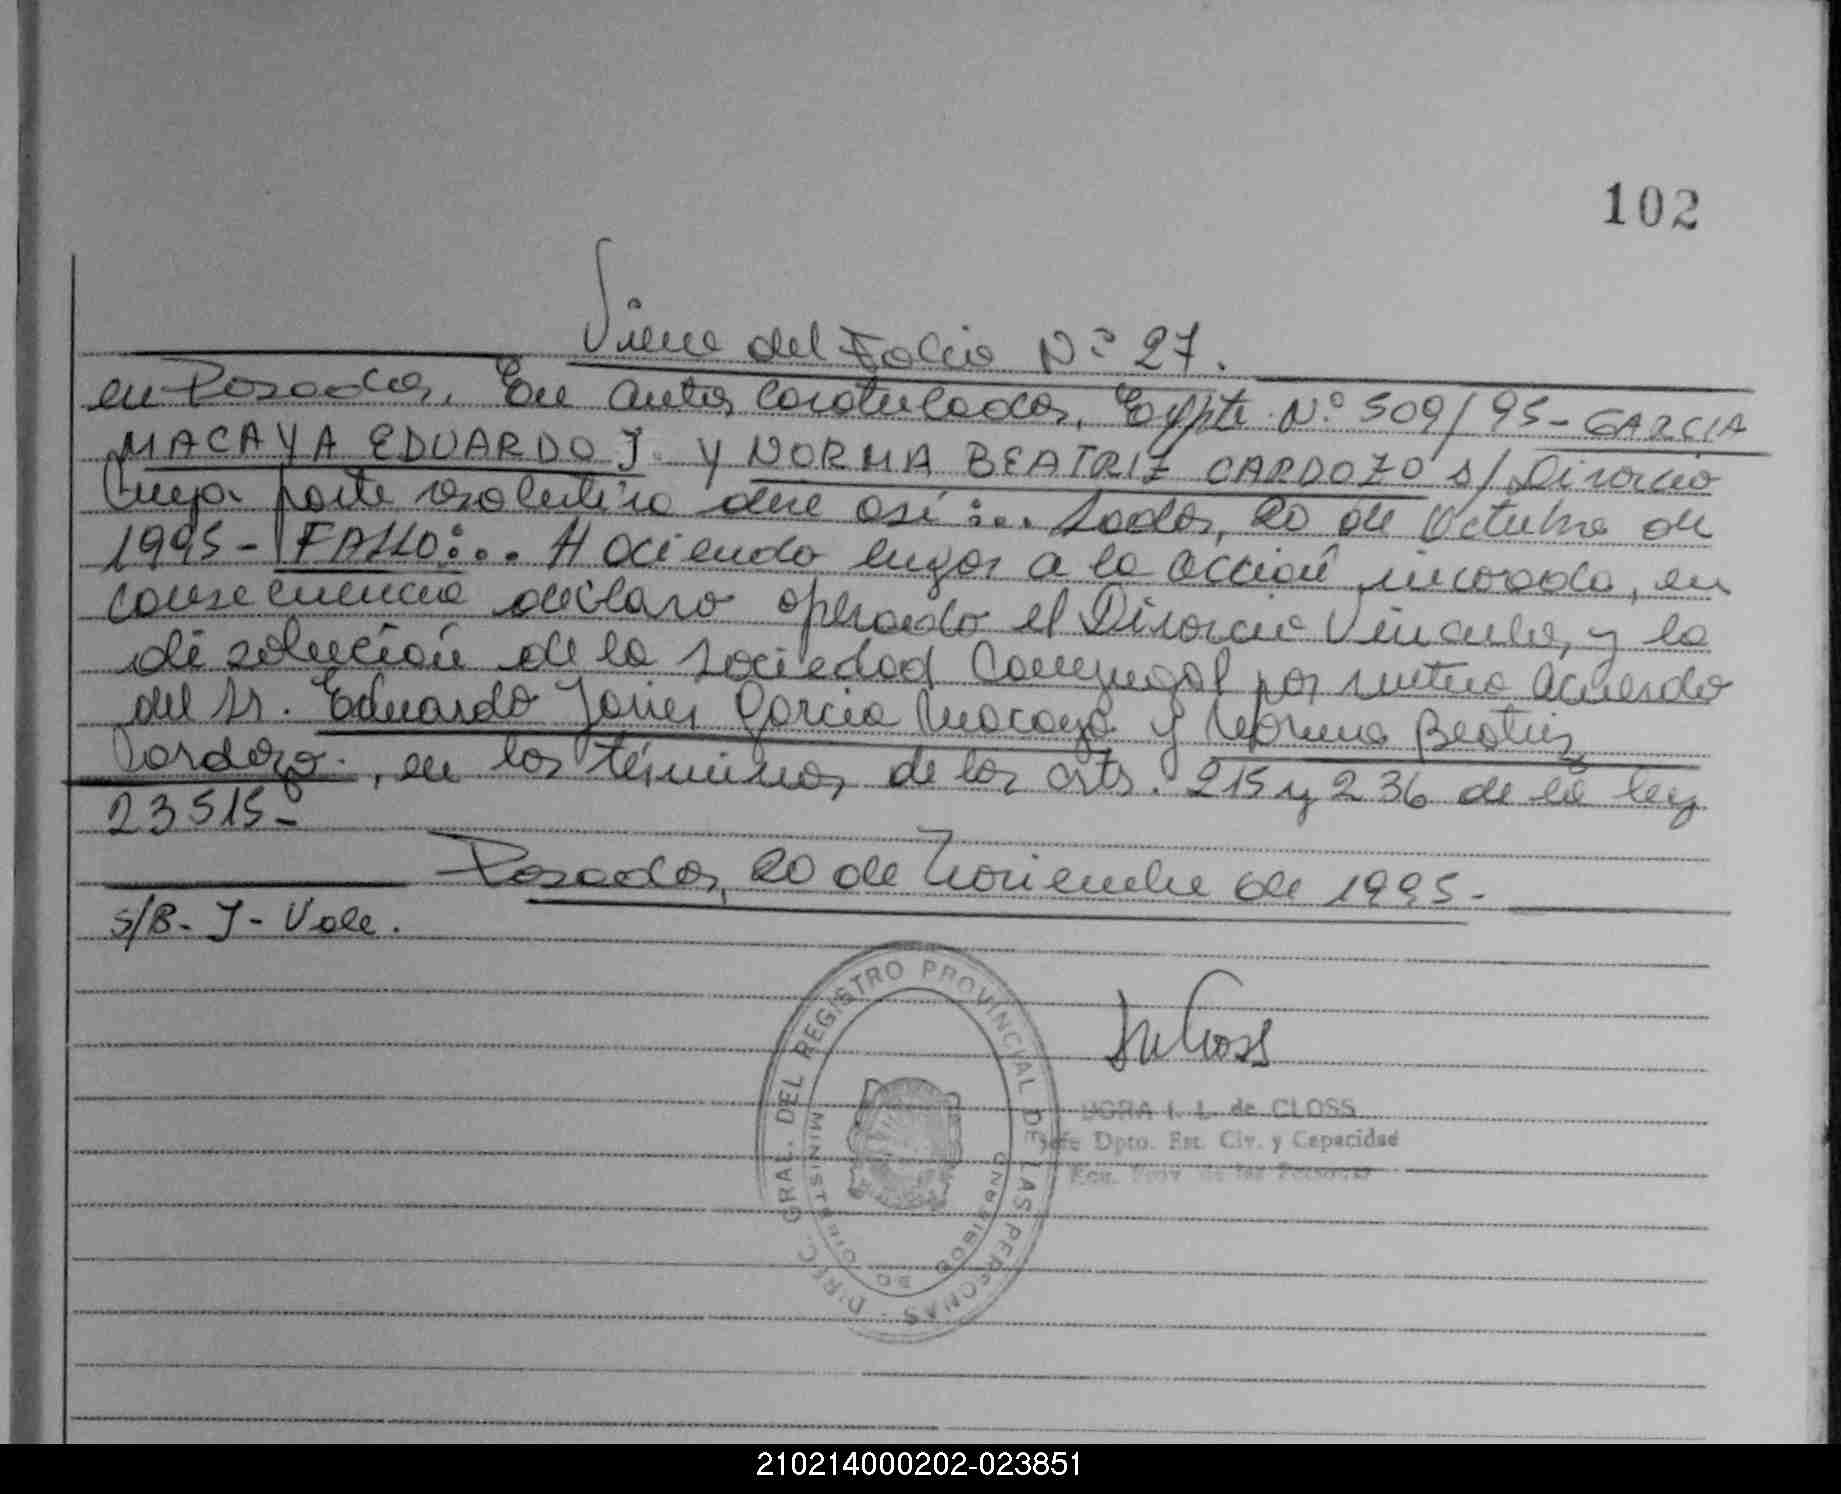 102
Viene del Folio Nº 27.
en Posadas. En autos caratulados, Expte Nº 509/95- GARCIA
MACAYA EDUARDO J. y NORMA BEATRIZ CARDOZO s/ Divorcio
Cuya parte resolutiva dice así:.. sadas, 20 de Octubre de
1995- FALLO:.. Haciendo lugar a la acción incoada, en
consecuencia declaro operado el Divorcio Vincular, y la
disolución de la sociedad Conyugal por mutuo acuerdo
del Sr. Eduardo Javier Garcia Macaya y Norma Beatriz
Cardozo., en los términos de los arts. 215 y 236 de la ley
23515-
Posadas, 20 de Noviembre de 1995.-
s/B- J- Vale.
DIREC. GRAL. DEL REGISTRO PROVINCIAL DE LAS PERSONAS -
MINISTERIO DE GOBIERNO
I. L. de CLOSS
Jefe Dpto. Est. Civ. y Capacidad
Prov. de las Personas
210214000202-023851